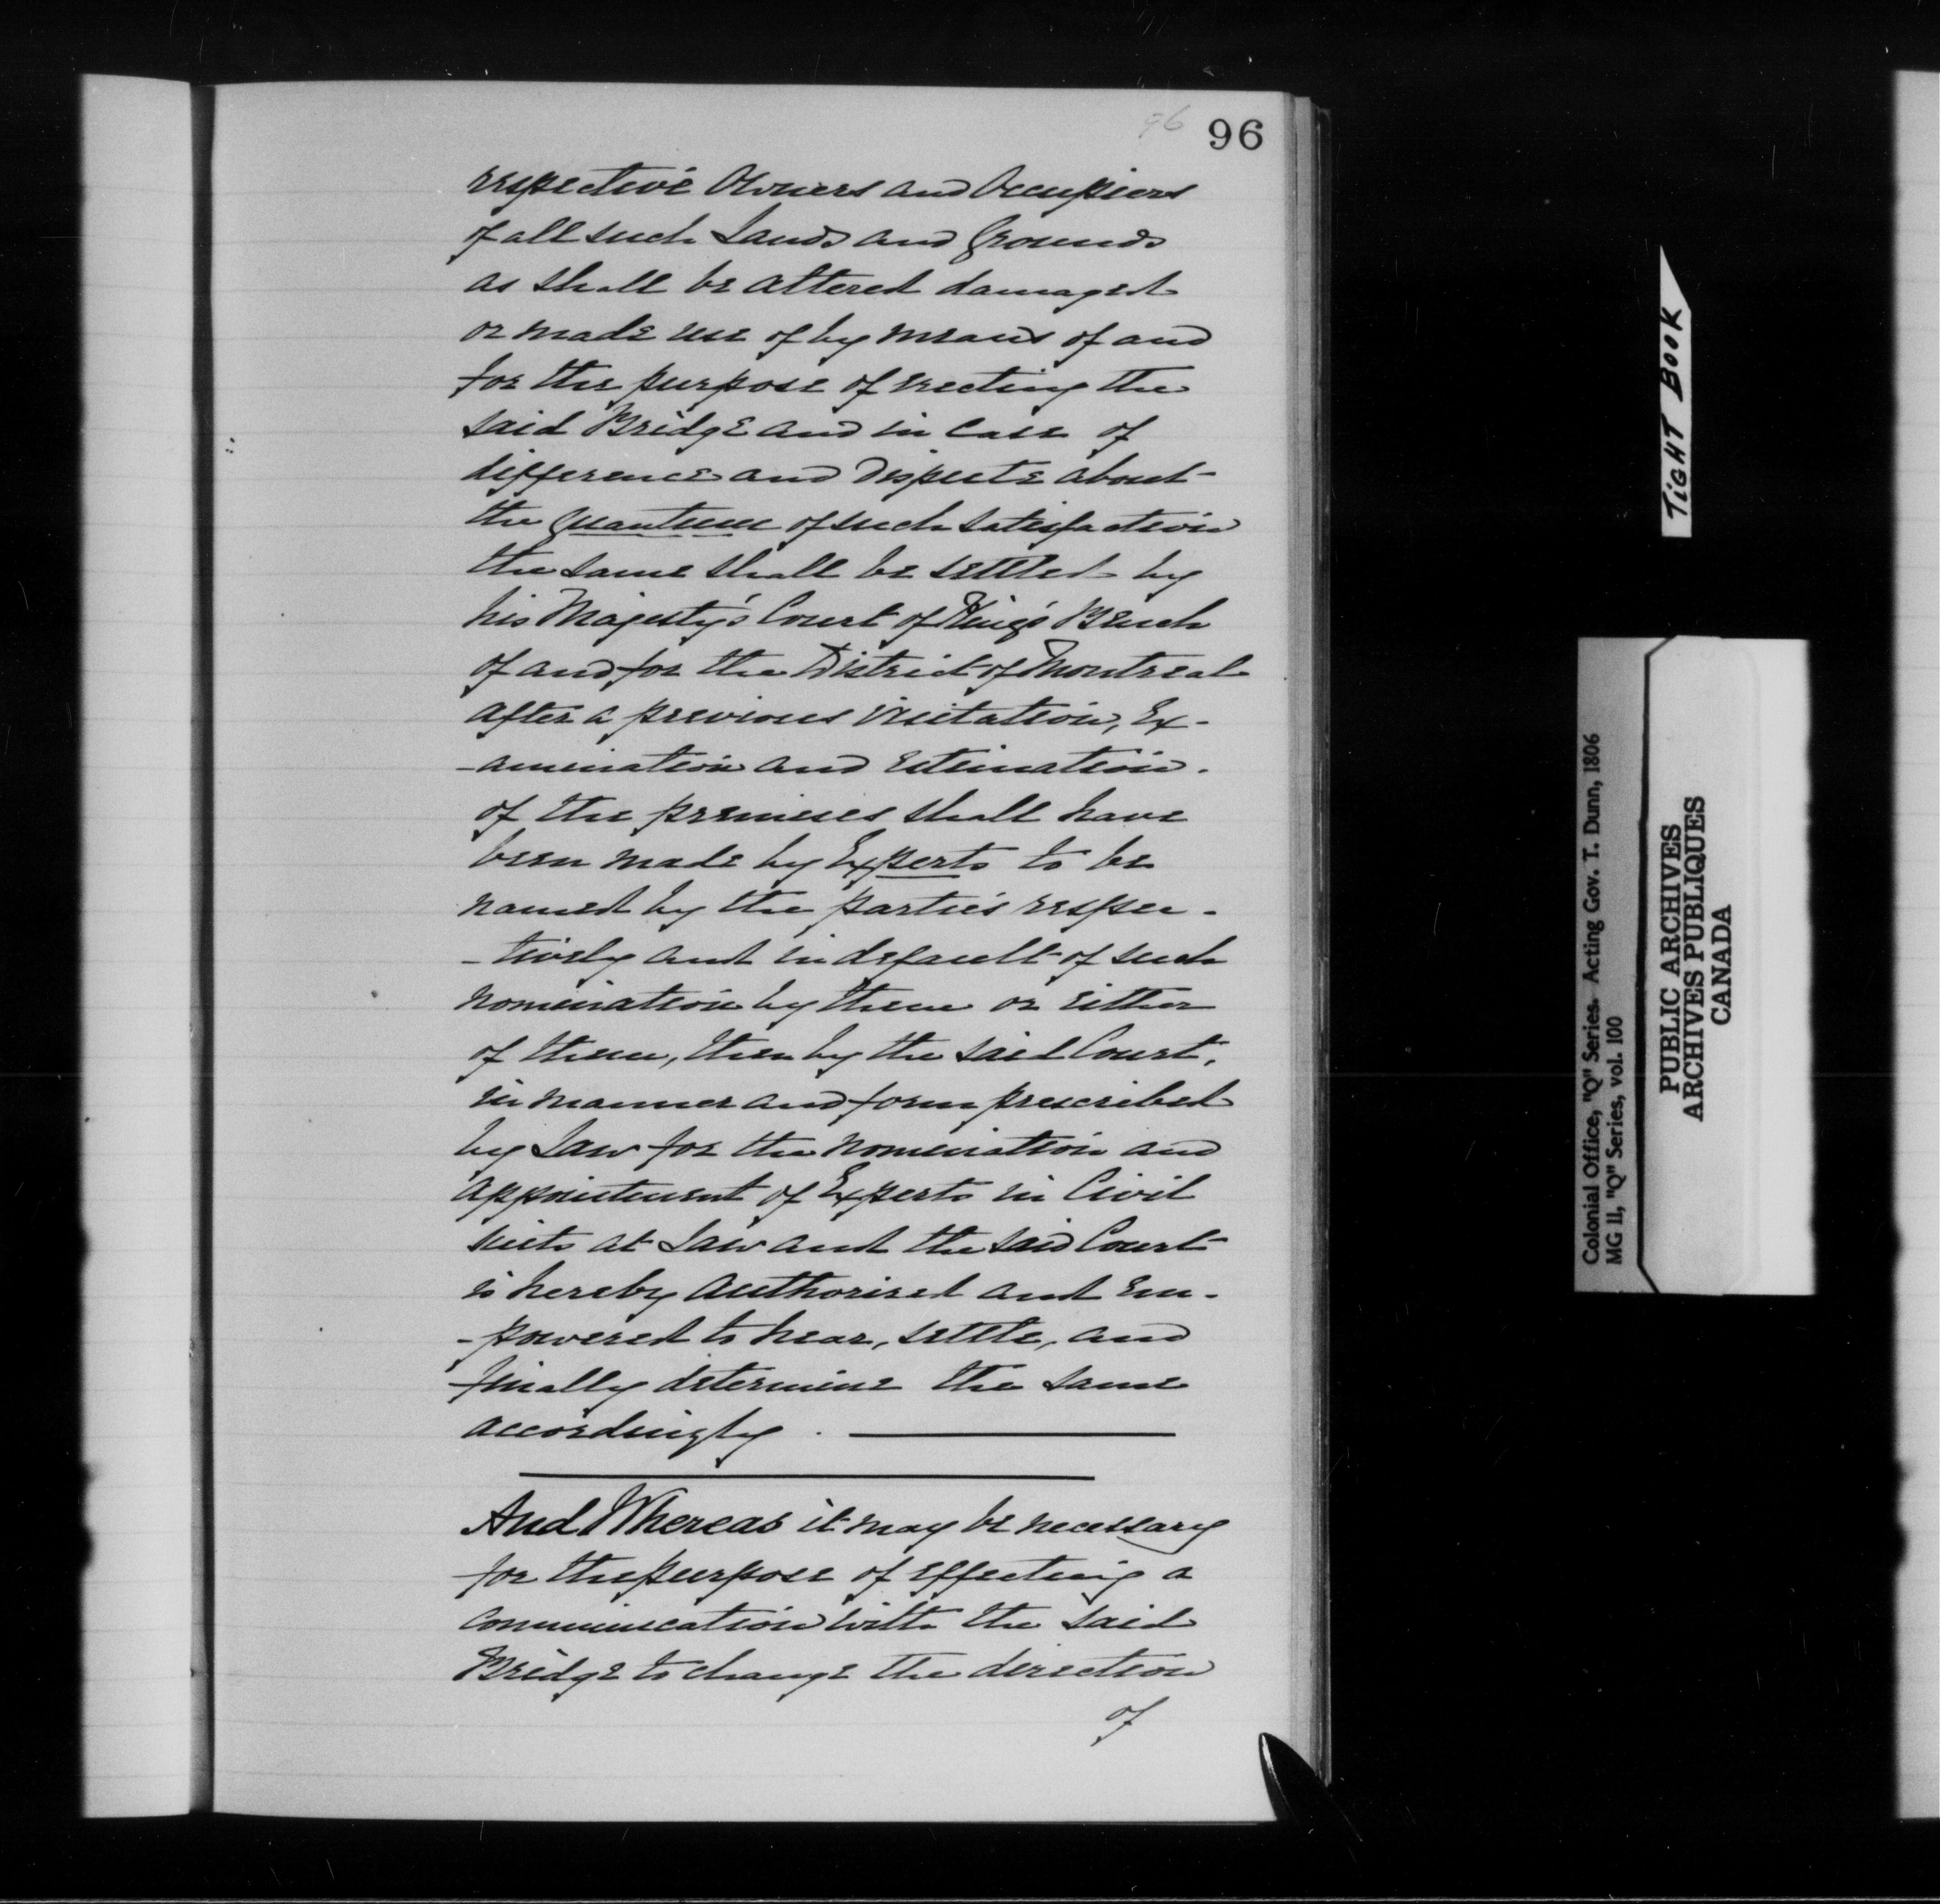 96 96
respective Owners and Occupiers
of all such Lands and Grounds
as shall be altered damaged
or made use of by means of and
for the purpose of erecting the
said Bridge and in case of
difference and Dispute about
the quantum of such satisfaction
the same shall be settled by
his Majesty's Court of King's Bench
of and for the District of Montreal
after a previous visitation, Ex-
-amination and Estimation.
of the premises shall have
been made by Experts to be
named by the parties respec-
-tively and in default of such
nomination by them or either
of them, then by the said Court,
in manner and form prescribed
by Law for the nomination and
appointment of Experts in Civil
suits at Law and the said Court
is hereby authorised and Em-
-powered to hear, settle, and
finally determine the same
accordingly.
And Whereas it may be necessary
for the purpose of effecting a
communication with the said
Bridge to change the direction
of
TiGHT BOOK
Colonial Office, "Q" Series. Acting Gov. T. Dunn, 1806
MG 11, "Q" Series, vol. 100
PUBLIC ARCHIVES
ARCHIVES PUBLIQUES
CANADA